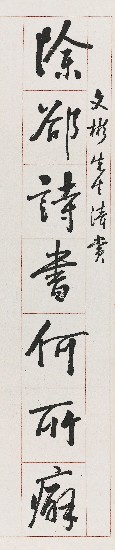 文彬先生清賞
除卻詩書何所癖